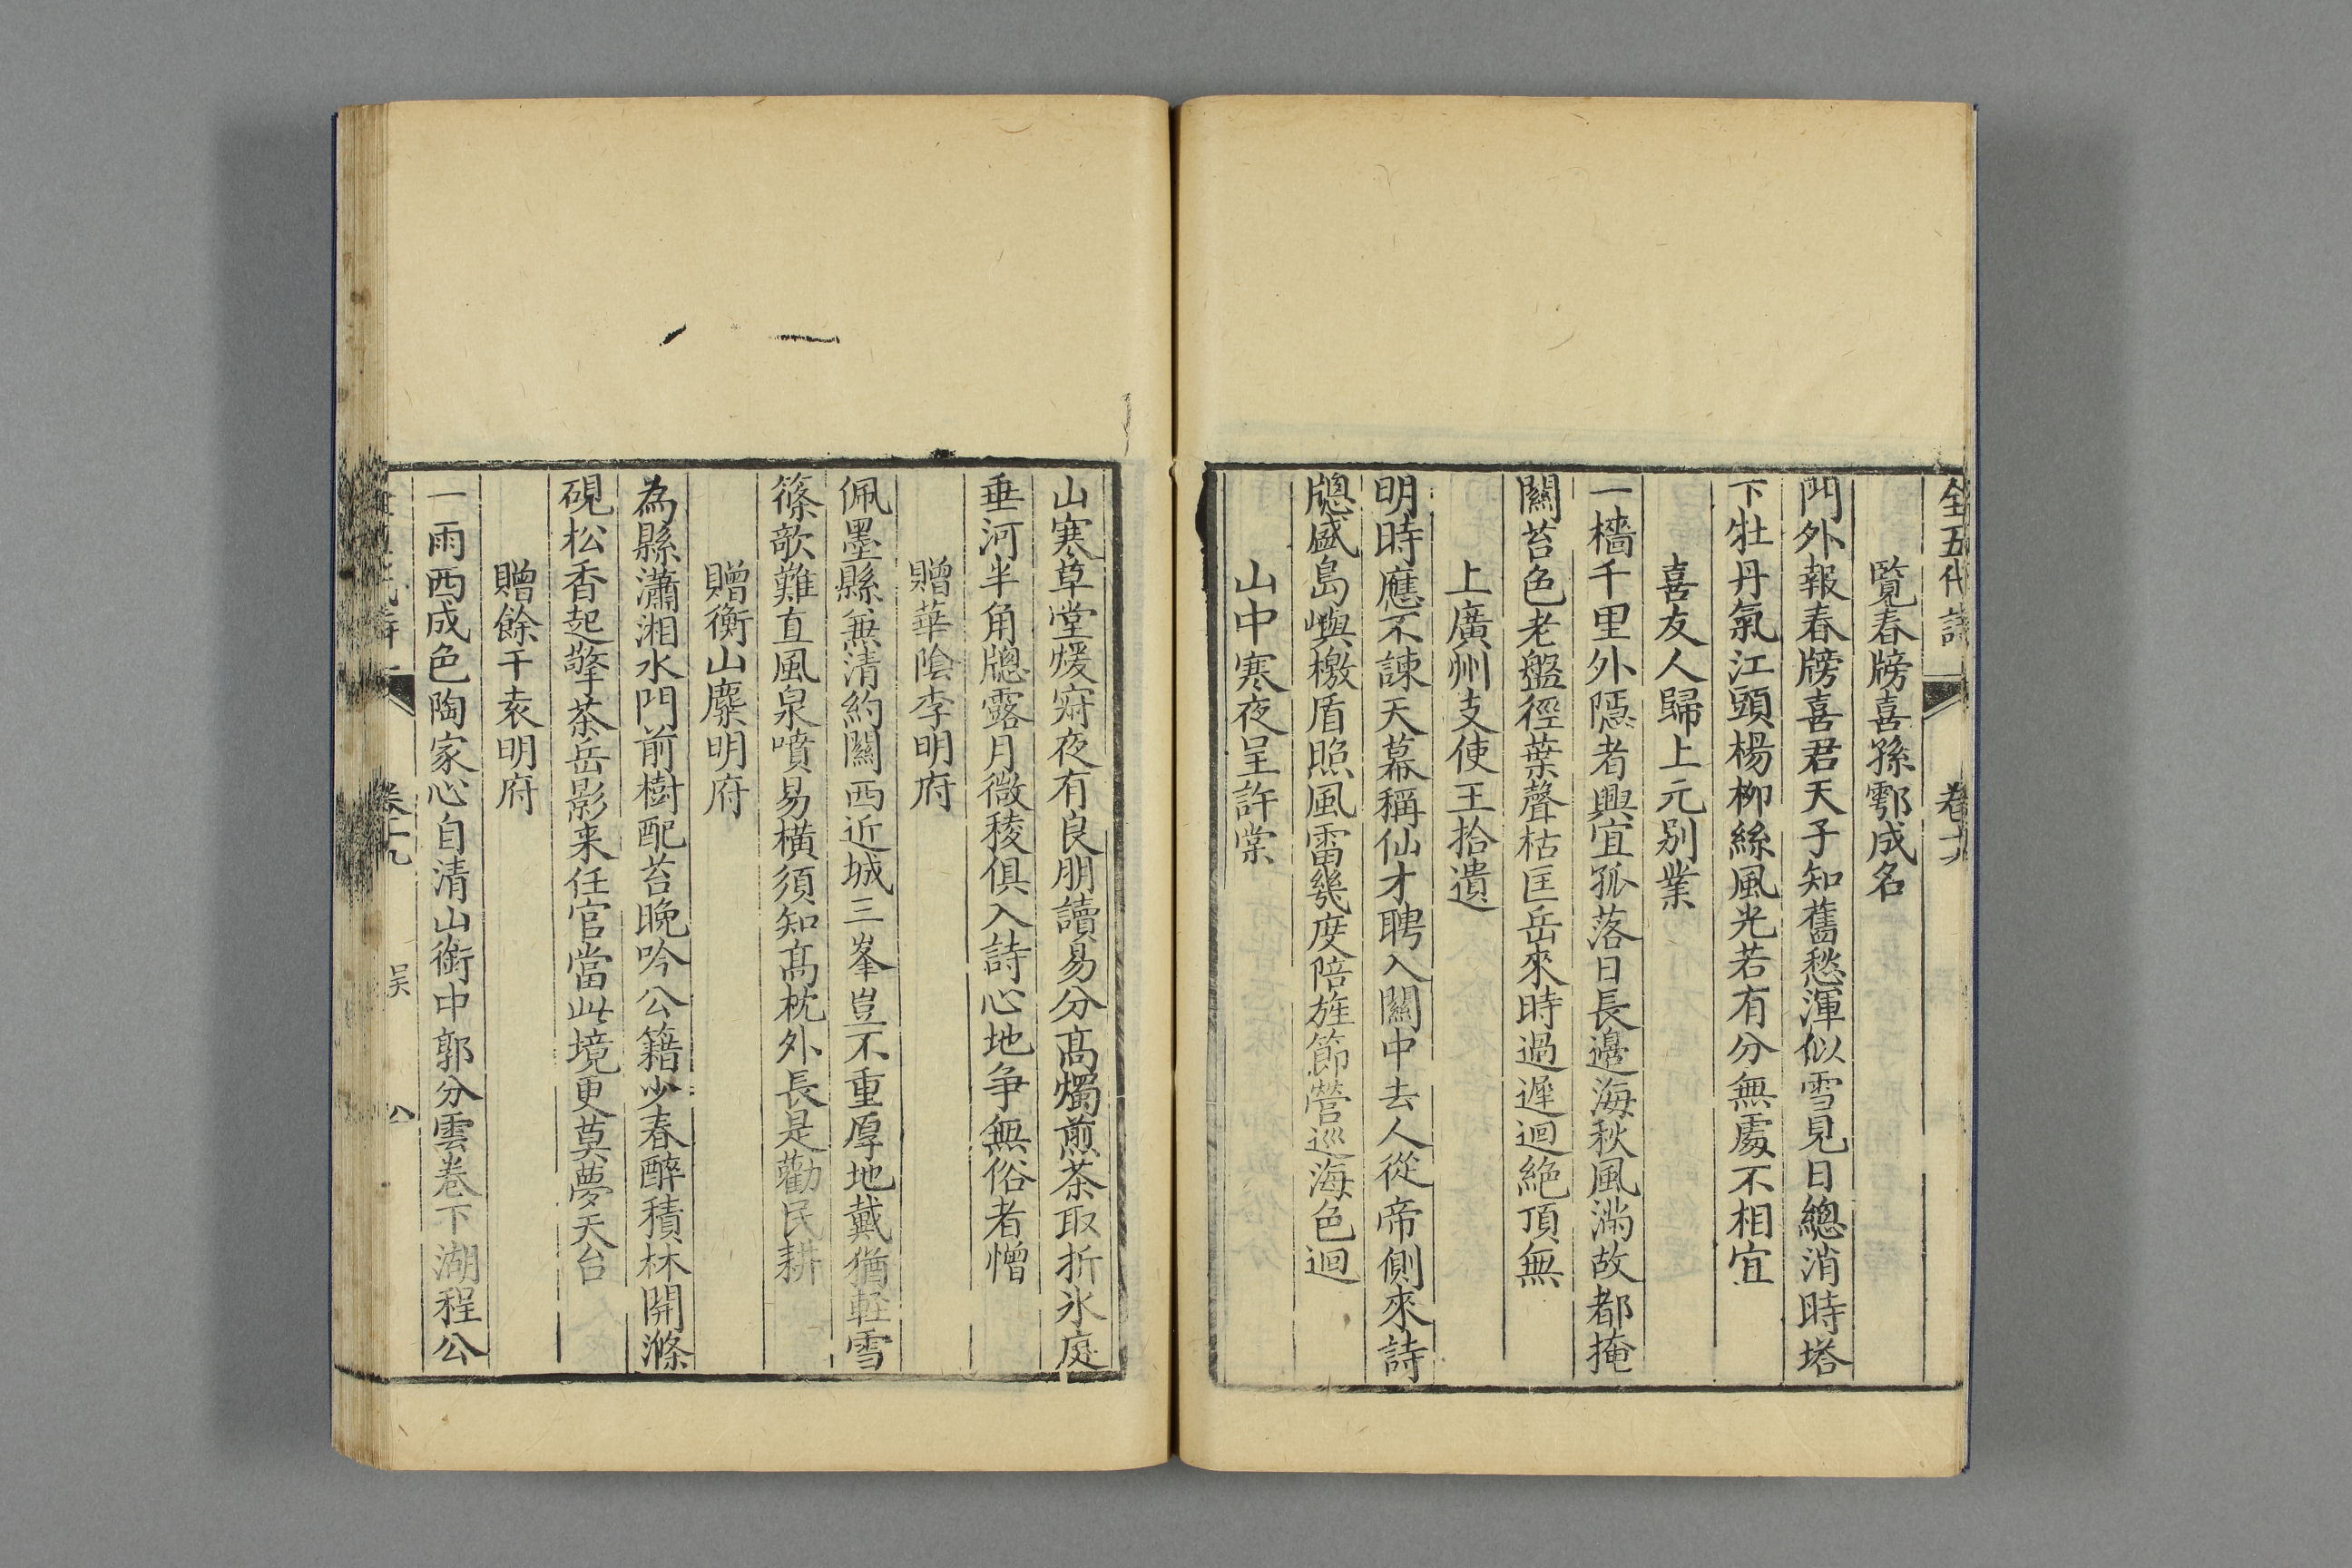 全五代詩 卷十九
覽春牓喜孫鄠成名
門外報春牓喜君天子知舊愁渾似雪見日總消時塔
下牡丹氣江頭楊柳絲風光若有分無處不相宜
喜友人歸上元別業
一檣千里外隱者興宜孤落日長邊海秋風滿故都掩
關苔色老盤徑葉聲枯匡岳來時過遲迴絕頂無
上廣州支使王拾遺
明時應不諫天幕稱仙才聘入關中去人從帝側來詩
牕盛島嶼檄盾照風雷幾度陪旌節營巡海色迴
山中寒夜呈許棠
山寒草堂煖寂夜有良朋讀易分高燭煎茶取折氷庭
垂河半角牕露月微稜俱入詩心地争無俗者憎
贈華陰李明府
佩墨縣兼清約關西近城三峯豈不重厚地戴猶軽雪
篠欹難直風泉噴易橫須知髙枕外長是勸民耕
贈衡山麋明府
為縣瀟湘水門前樹配苔晚吟公籍少春醉積林開滌
硯松香起擎茶岳影来任官當此境更莫夢天台
贈餘干袁明府
一雨西成色陶家心自清山衙中郭分雲卷下湖程公
卷十九 吴 八